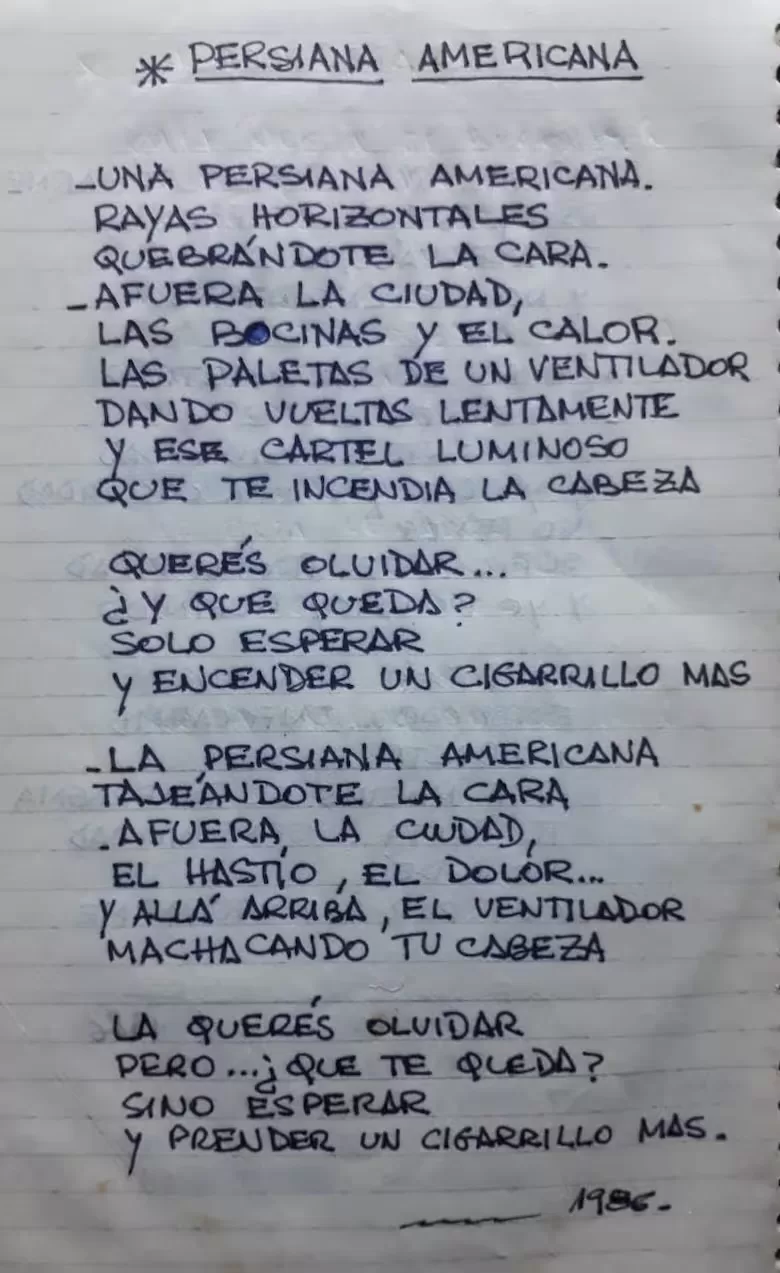 * PERSIANA AMERICANA
-UNA PERSIANA AMERICANA.
RAYAS HORIZONTALES
QUEBRÁNDOTE LA CARA.
-AFUERA LA CIUDAD,
LAS BOCINAS Y EL CALOR.
LAS PALETAS DE UN VENTILADOR
DANDO VUELTAS LENTAMENTE
Y ESE CARTEL LUMINOSO
QUE TE INCENDIA LA CABEZA
QUERÉS OLVIDAR...
¿Y QUE QUEDA?
SOLO ESPERAR
Y ENCENDER UN CIGARRILLO MAS
-LA PERSIANA AMERICANA
TAJEÁNDOTE LA CARA
.AFUERA, LA CIUDAD,
EL HASTÍO, EL DOLOR...
Y ALLÁ ARRIBA, EL VENTILADOR
MACHACANDO TU CABEZA
LA QUERÉS OLVIDAR
PERO...¿QUE TE QUEDA?
SINO ESPERAR
Y PRENDER UN CIGARRILLO MAS.
1986.-